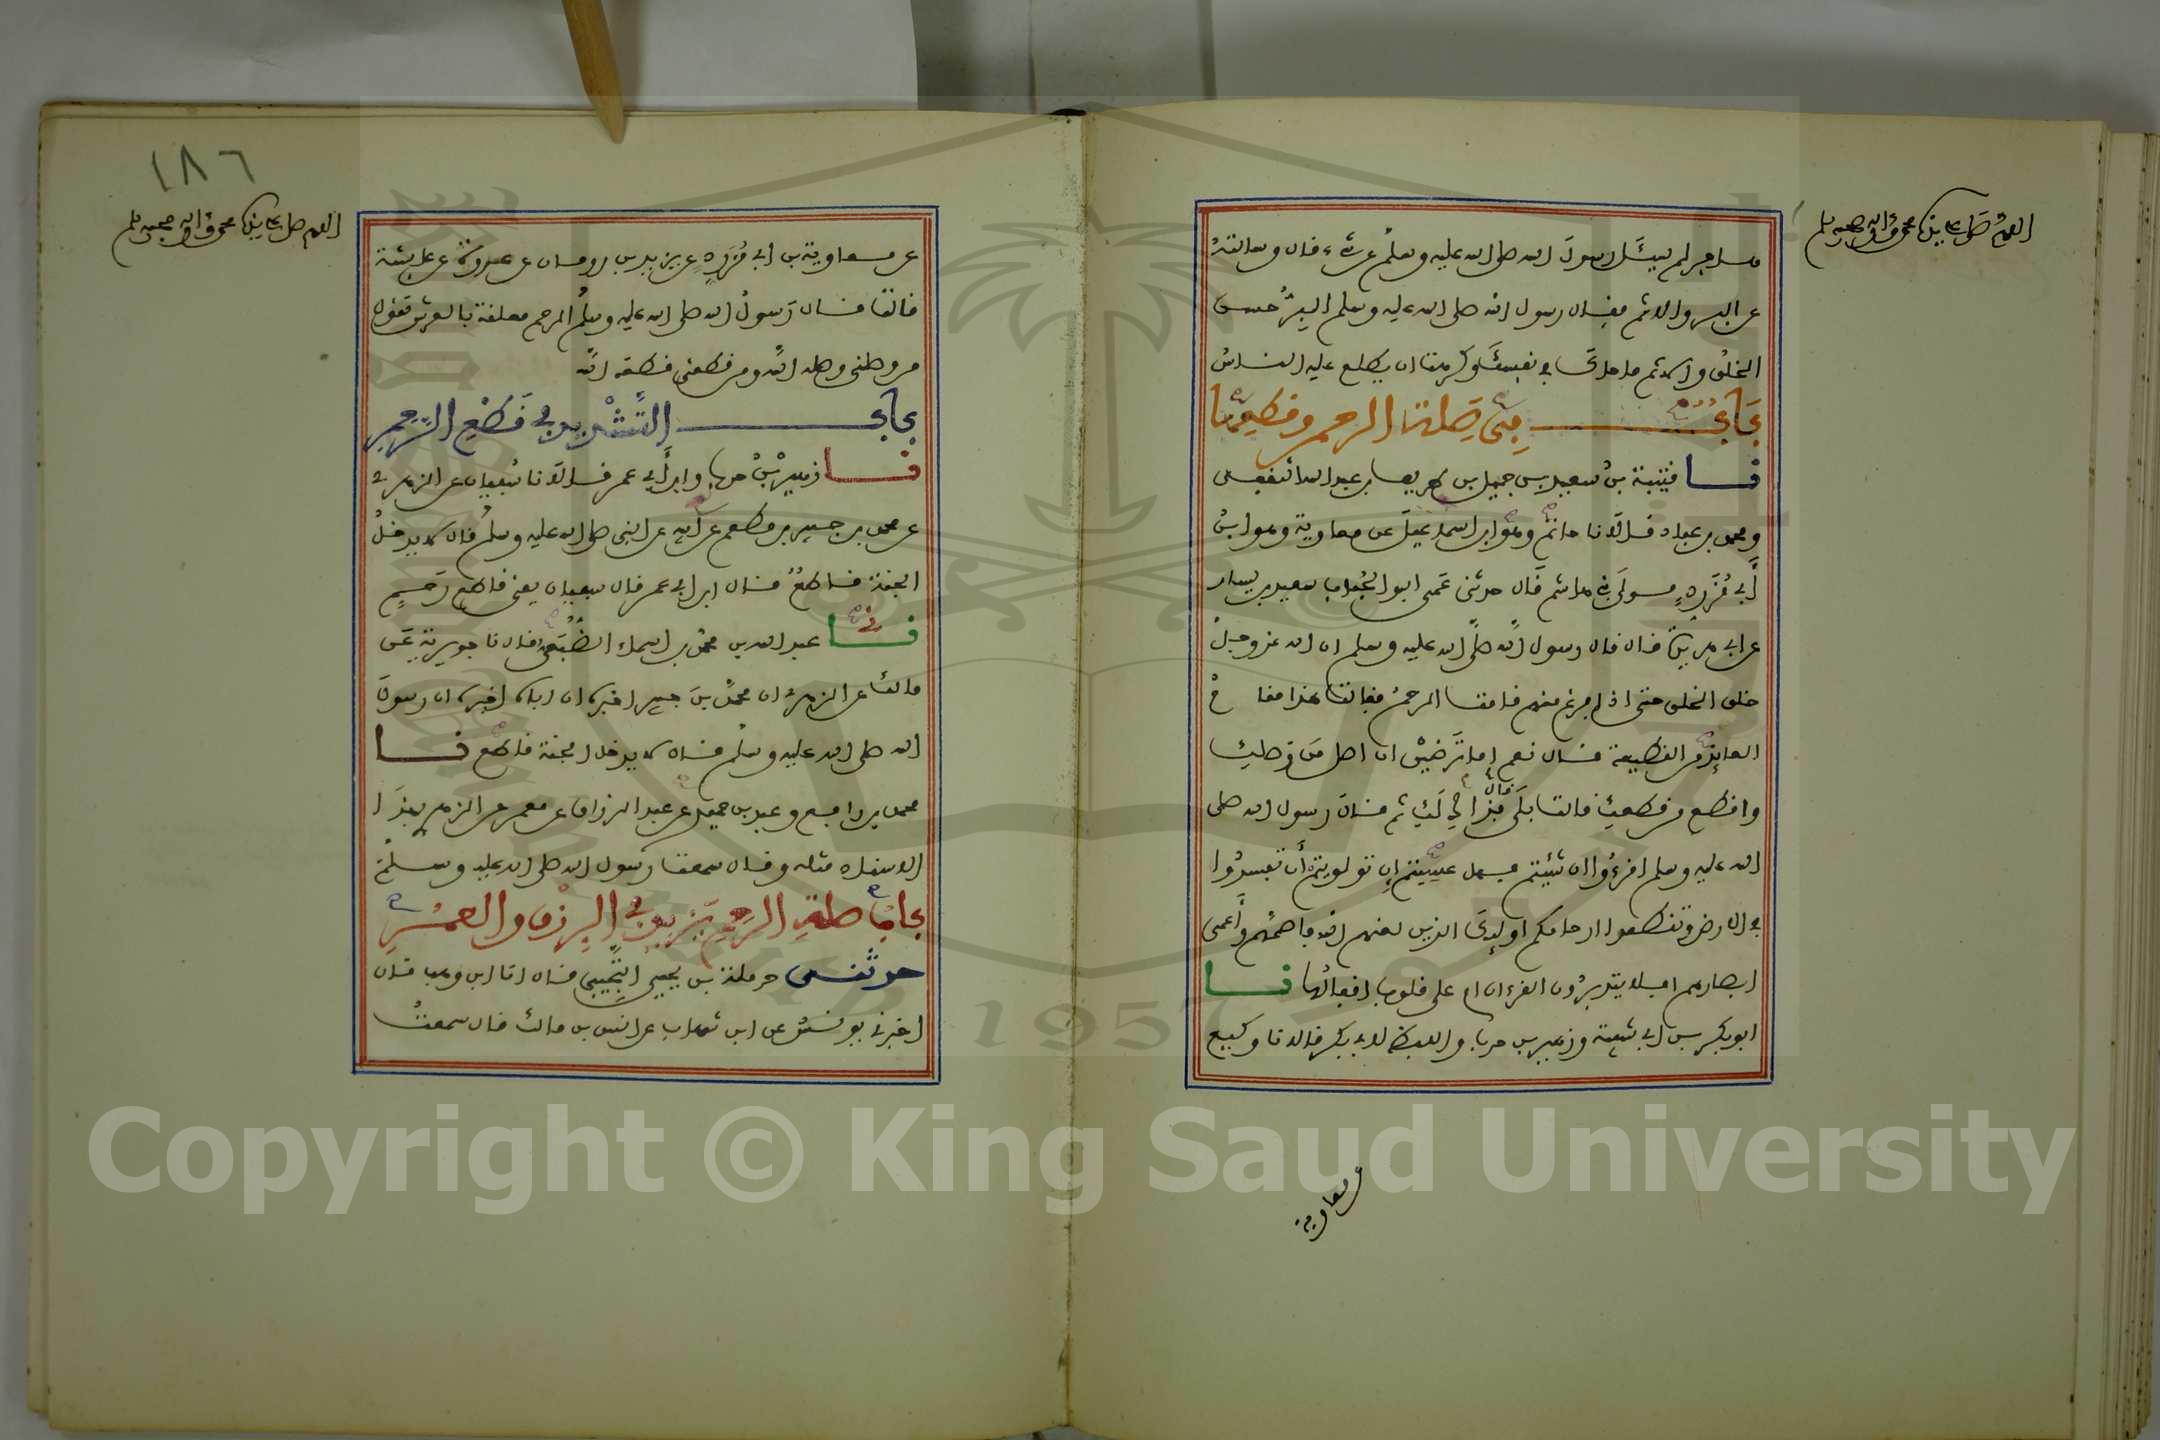 اللهم صل على سيدنا محمد وآله وصحبه وسلم
هاجر لم يسئل رسول الله صلى الله عليه وسلم عن شيء قال وسالته
عن البر والاثم فقال رسول الله صلى الله عليه وسلم البر حسن
الخلق والاثم ما حاك في نفسك وكرهت ان يطلع عليه الناس
باب في صلة الرحم وقطيعتها
نا قتيبة بن سعيد بن جميل بن طريف بن عبد الله الثقفي
ومحمد بن عباد قالا نا حاتم وهو ابن اسماعيل عن معاوية وهو ابن
أبي مزرد مولى بني هاشم قال حدثني عمي ابو الحباب سعيد بن يسار
عن ابي هريرة قال قال رسول الله صلى الله عليه وسلم ان الله عز وجل
خلق الخلق حتى اذا فرغ منهم قامت الرحم فقالت هذا مقام
العائذ من القطيعة قال نعم اما ترضين ان اصل من وصلك
واقطع من قطعك قالت بلى قال فذاك لك ثم قال رسول الله صلى
الله عليه وسلم اقرءوا ان شئتم فهل عسيتم ان توليتم أن تفسدوا
في الارض وتقطعوا ارحامكم اولئك الذين لعنهم الله فاصمهم وأعمى
ابصارهم افلا يتدبرون القرءان ام على قلوب اقفالها نا
ابو بكر بن ابي شيبة وزهير بن حرب واللفظ لابي بكر قالا نا وكيع
عن معاوية
١٨٦
اللهم صل على سيدنا محمد وآله وصحبه وسلم
عن معاوية بن ابي مزرد عن يزيد بن رومان عن عروة عن عايشة
قالت قال رسول الله صلى الله عليه وسلم الرحم معلقة بالعرش تقول
من وصلني وصله الله ومن قطعني قطعه الله
باب التشديد في قطع الرحم
نا زهير بن حرب وابن أبي عمر قالا نا سفيان عن الزهري
عن محمد بن جبير بن مطعم عن ابيه عن النبي صلى الله عليه وسلم قال لا يدخل
الجنة قاطع قال ابن ابي عمر قال سفيان يعني قاطع رحم
نا عبد الله بن محمد بن اسماء الضبعي قال نا جويرية عن
مالك عن الزهري ان محمد بن جبير اخبره ان اباه اخبره ان رسول
الله صلى الله عليه وسلم قال لا يدخل الجنة قاطع نا
محمد بن رافع وعبد بن حميد عن عبد الرزاق عن معمر عن الزهري بهذا
الاسناد مثله وقال سمعت رسول الله صلى الله عليه وسلم
باب صلة الرحم تزيد في الرزق والعمر
حدثني حرملة بن يحيى التجيبي قال انا ابن وهب قال
اخبرني يونس عن ابن شهاب عن انس بن مالك قال سمعت
Copyright © King Saud University
1957